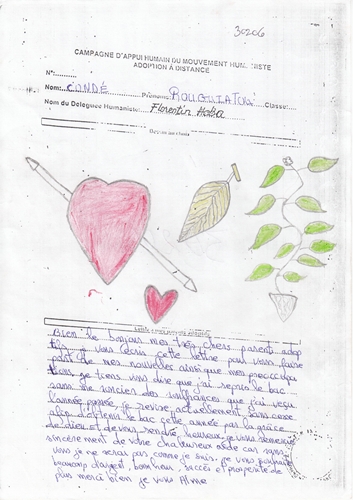 30206
CAMPAGNE D'APPUI HUMAIN DU MOUVEMENT HUMANISTE
ADOPTION A DISTANCE
N°:
Nom: CONDÉ Prénoms: Classe:
Nom du Délégué Humaniste: Florentin Haba
Bien le bonjour mes très chers parents adop
tifs je vous écris cette lettre pour vous faire
part de mes nouvelles ainsi que mes préoccupa
tions je tiens vous dire que j'ai repris le bac
sans me soucier des souffrances que j'ai vécu
l'année passée je révise actuellement sans cesse
afin d'obtenir le bac cette année par la grâce
de dieu et de vous rendre heureux je vous remercie
sincèrement de votre chaleureux aide car sans
vous je ne serai pas comme je suis je vous souhaite
beaucoup d'argent, bonheur, succès et prospérité de
plus merci bien je vous Aime